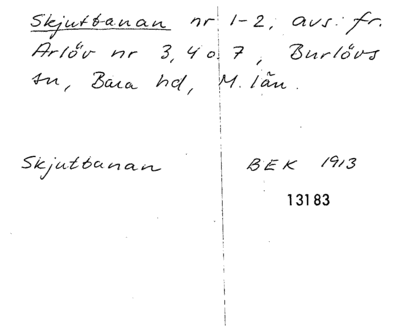 Skjutbanan nr 1-2, avs. fr.
Arlöv nr 3, 4 o 7, Burlövs
sn, Bara hd, M. län.
Skjutbanan BEK 1913
13183